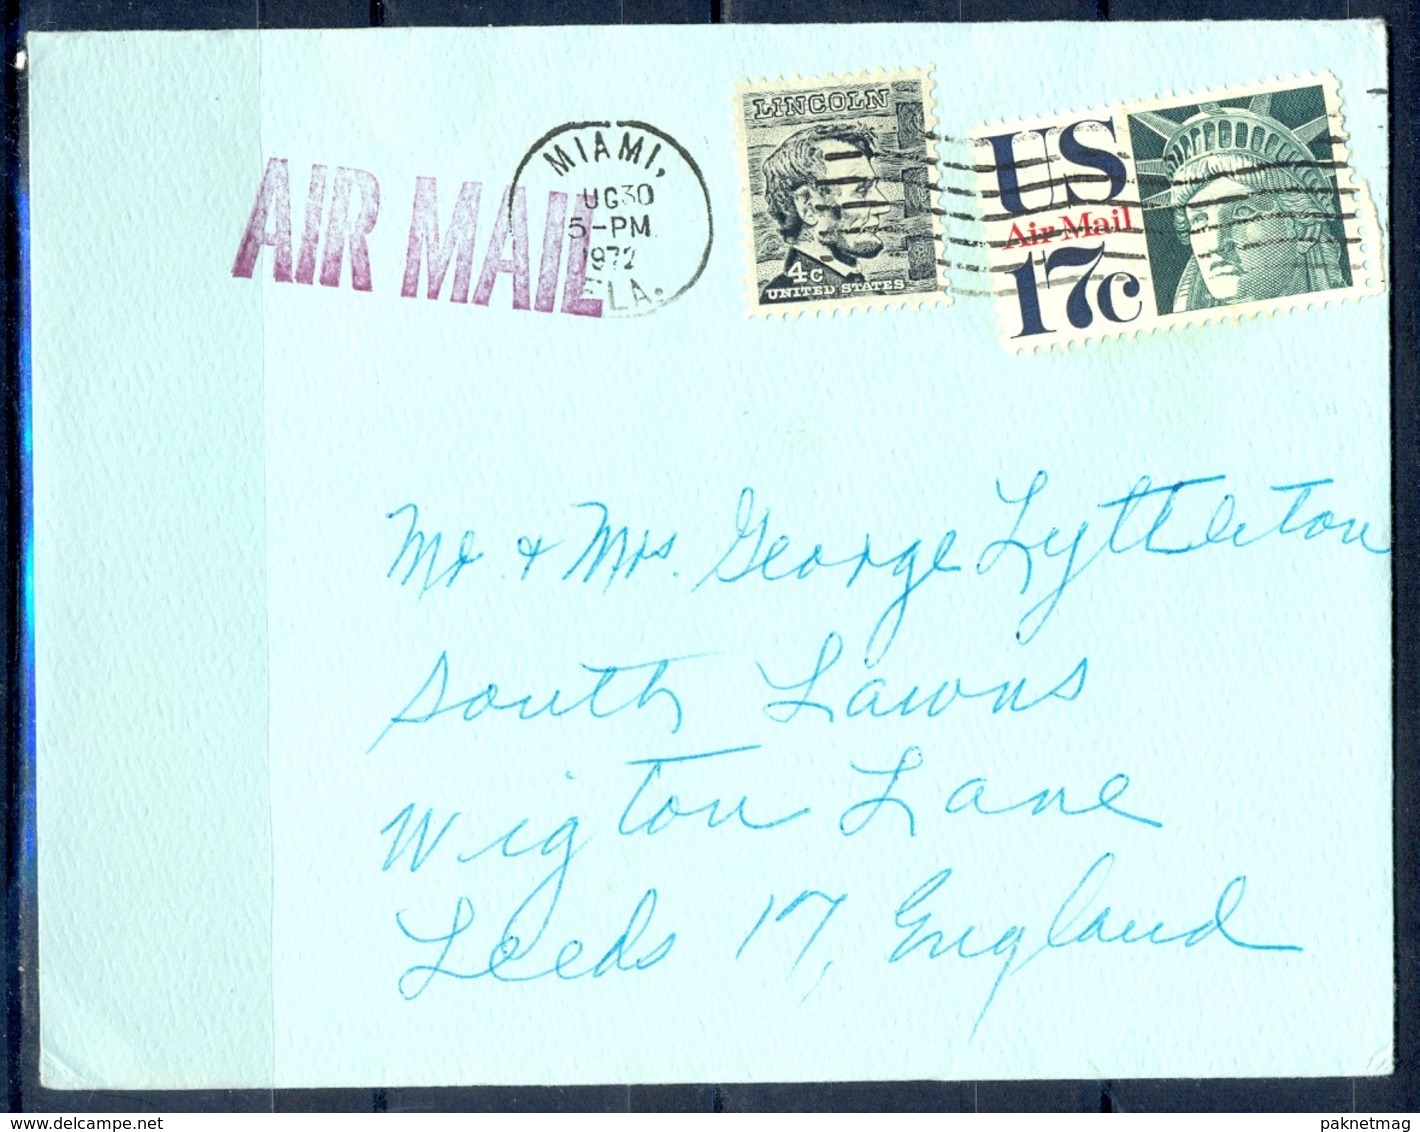 AIR MAIL
MIAMI,
UG30
5-PM
1972
LA.
LINCOLN
4c
UNITED STATES
US
Air Mail
17c
Mr. & Mrs. George Lyttleton
South Lawns
Wigton Lane
Leeds 17, England
www.delcampe.net
paknetmag